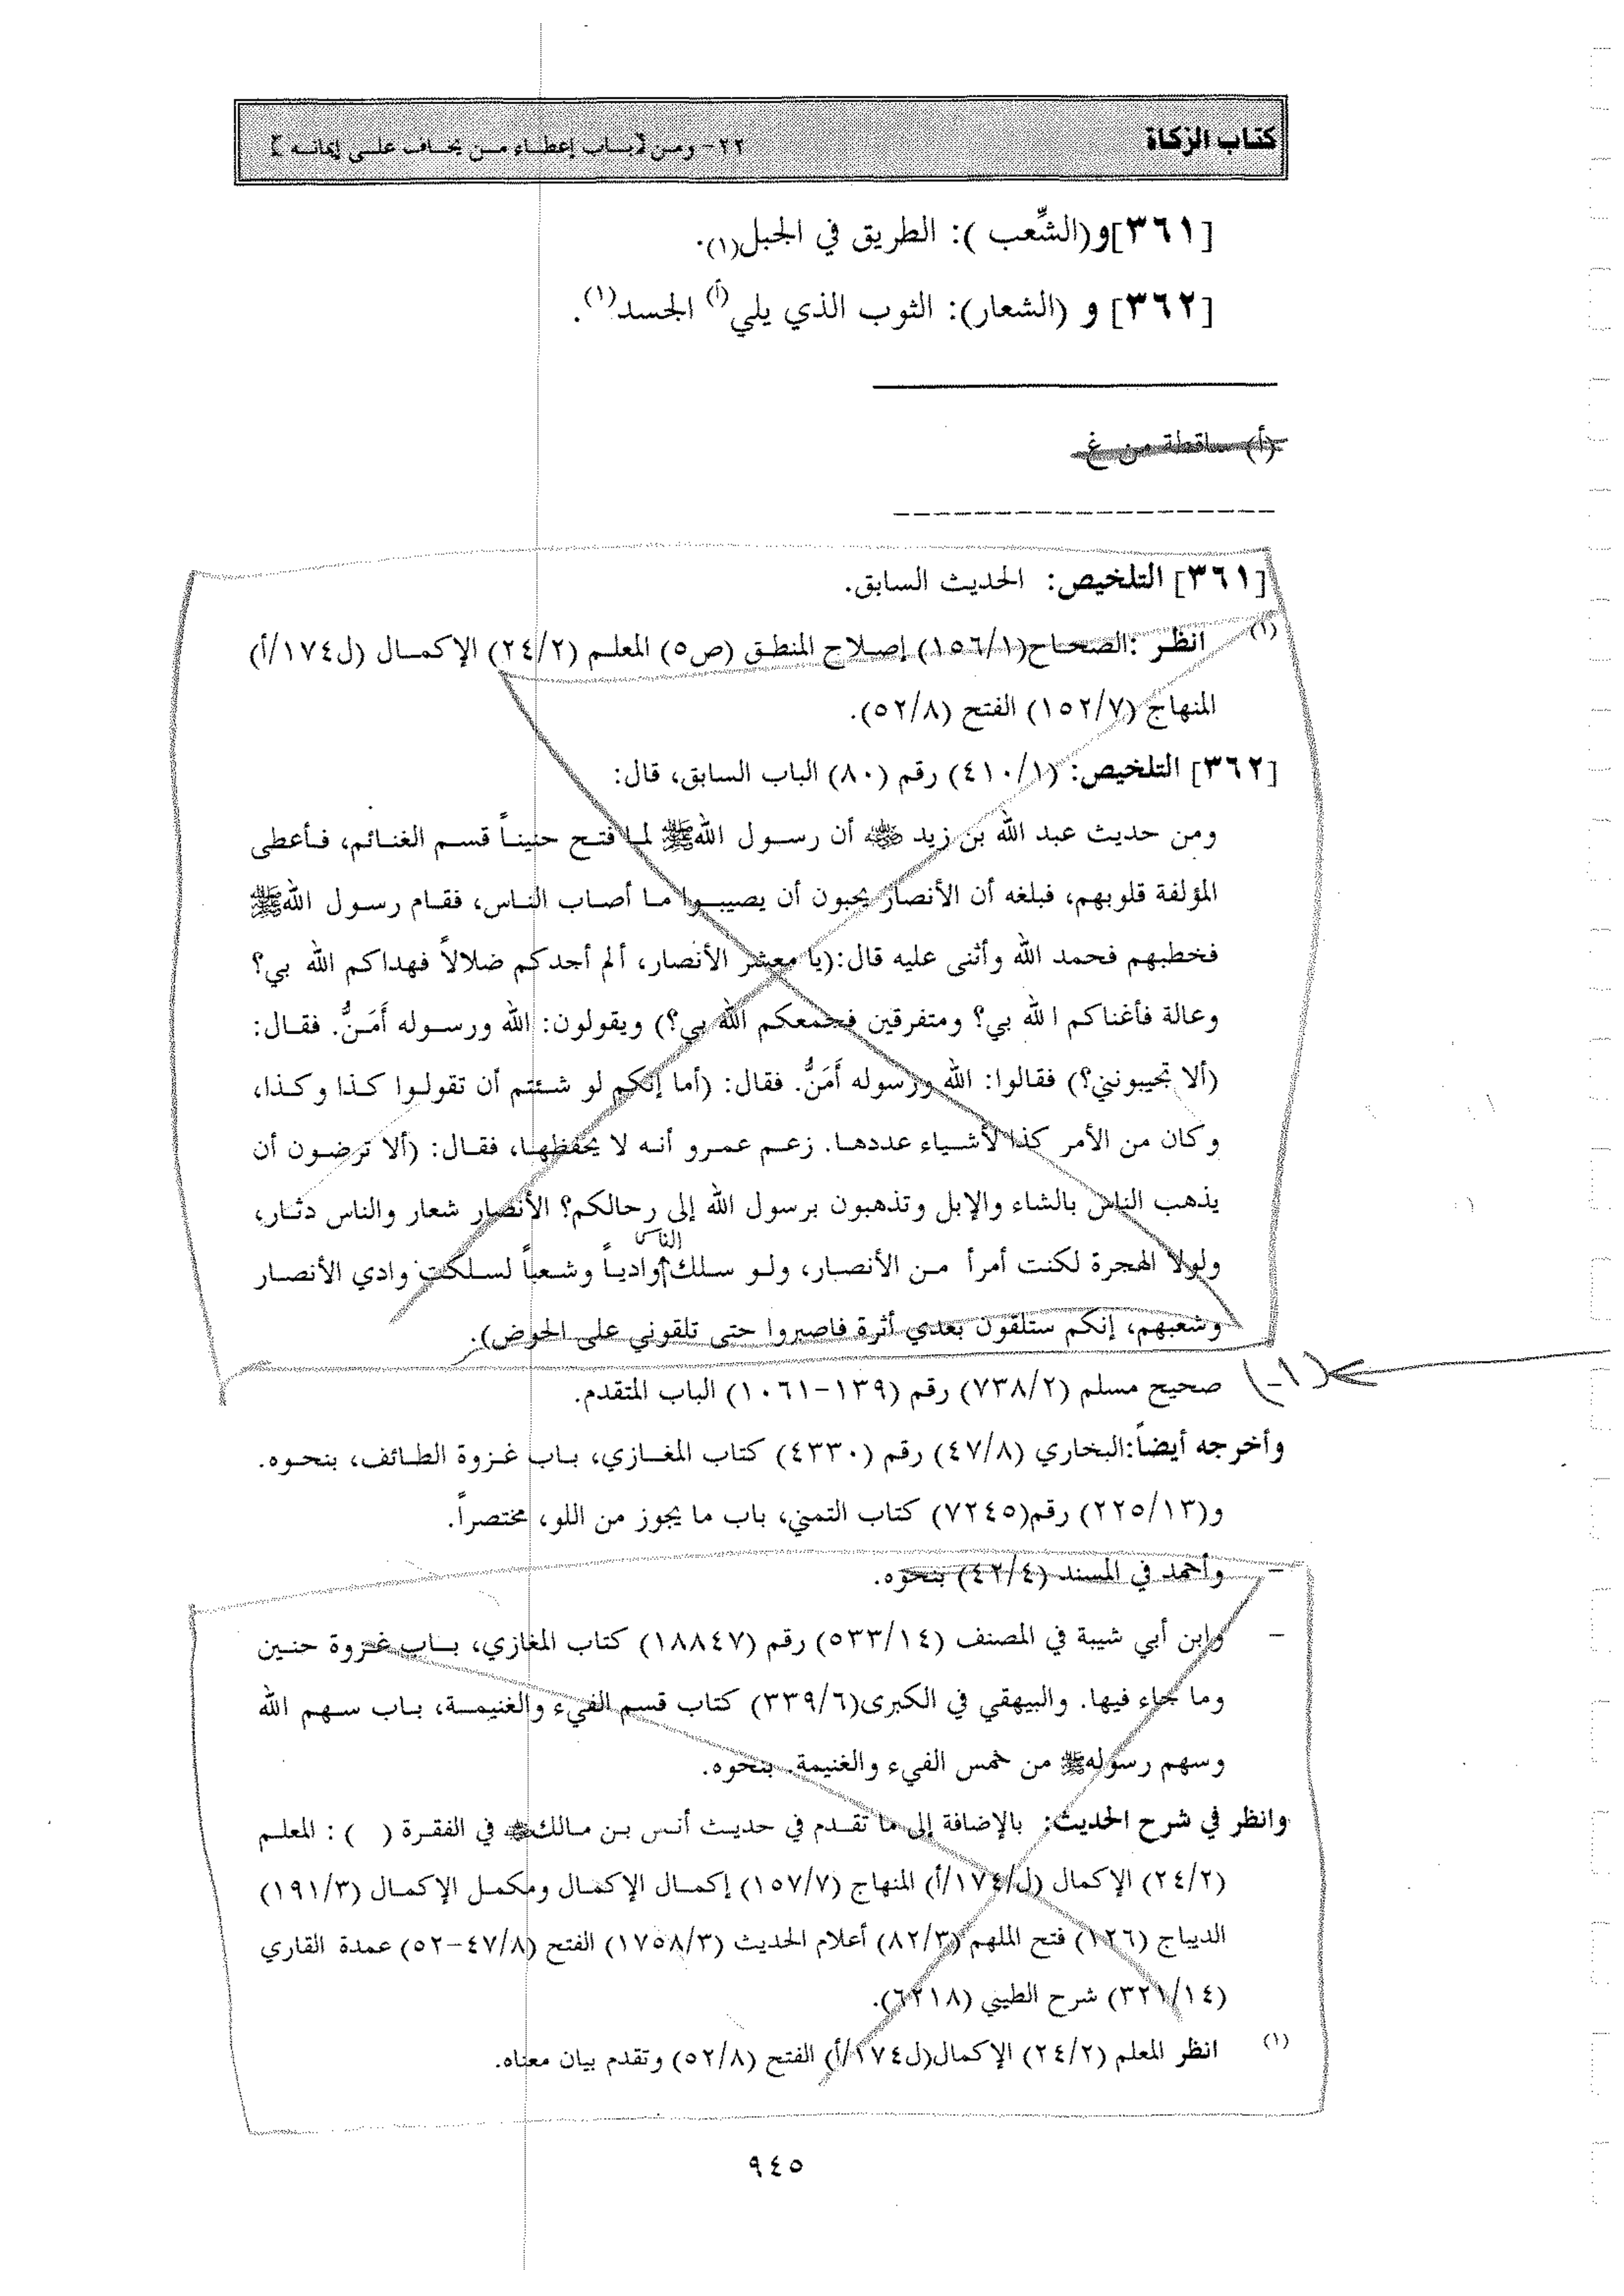 كتاب الزكاة
٢٢- ومن [باب إعطاء من يخاف على إيمانه]
[٣٦١]و(الشِّعب ): الطريق في الجبل(١).
[٣٦٢] و (الشعار): الثوب الذي يلي(أ) الجسد(١).
(أ) ساقطة من غ
[٣٦١] التلخيص: الحديث السابق.
(١) انظر :الصحاح(١٥٦/١) إصلاح المنطق (ص٥) المعلم (٢٤/٢) الإكمال (ل١٧٤/أ)
المنهاج (١٥٢/٧) الفتح (٥٢/٨).
[٣٦٢] التلخيص: (٤١٠/١) رقم (٨٠) الباب السابق، قال:
ومن حديث عبد الله بن زيد ﷺ أن رسول الله ﷺ لما فتح حنيناً قسم الغنائم، فأعطى
المؤلفة قلوبهم، فبلغه أن الأنصار يحبون أن يصيبوا ما أصاب الناس، فقام رسول الله ﷺ
فخطبهم فحمد الله وأثنى عليه قال:(يا معشر الأنصار، ألم أجدكم ضلالاً فهداكم الله بي؟
وعالة فأغناكم الله بي؟ ومتفرقين فجمعكم الله بي؟) ويقولون: الله ورسوله أَمَنُّ. فقال:
(ألا تجيبونني؟) فقالوا: الله ورسوله أَمَنُّ. فقال: (أما إنكم لو شئتم أن تقولوا كذا وكذا،
وكان من الأمر كذا لأشياء عددها. زعم عمرو أنه لا يحفظها، فقال: (ألا ترضون أن
يذهب الناس بالشاء والإبل وتذهبون برسول الله إلى رحالكم؟ الأنصار شعار والناس دثار،
الناس
ولولا الهجرة لكنت أمرأ من الأنصار، ولو سلك وادياً وشعباً لسلكت وادي الأنصار
وشعبهم، إنكم ستلقون بعدي أثرة فاصبروا حتى تلقوني على الحوض).
(١- صحيح مسلم (٧٣٨/٢) رقم (١٣٩-١٠٦١) الباب المتقدم.
وأخرجه أيضاً:البخاري (٤٧/٨) رقم (٤٣٣٠) كتاب المغازي، باب غزوة الطائف، بنحوه.
و(٢٢٥/١٣) رقم(٧٢٤٥) كتاب التمني، باب ما يجوز من اللو، مختصراً.
- وأحمد في المسند (٤٢/٤) بنحوه.
- وابن أبي شيبة في المصنف (٥٣٣/١٤) رقم (١٨٨٤٧) كتاب المغازي، باب غزوة حنين
وما جاء فيها. والبيهقي في الكبرى(٣٣٩/٦) كتاب قسم الفيء والغنيمة، باب سهم الله
وسهم رسوله ﷺ من خمس الفيء والغنيمة. بنحوه.
وانظر في شرح الحديث: بالإضافة إلى ما تقدم في حديث أنس بن مالك في الفقرة ( ) : المعلم
(٢٤/٢) الإكمال (ل/١٧٤/أ) المنهاج (١٥٧/٧) إكمال الإكمال ومكمل الإكمال (١٩١/٣)
الديباج (١٢٦) فتح الملهم (٨٢/٣) أعلام الحديث (١٧٥٨/٣) الفتح (٤٧/٨-٥٢) عمدة القاري
(٣٢١/١٤) شرح الطيبي (٦٢١٨).
(١) انظر المعلم (٢٤/٢) الإكمال(ل١٧٤/أ) الفتح (٥٢/٨) وتقدم بيان معناه.
٩٤٥